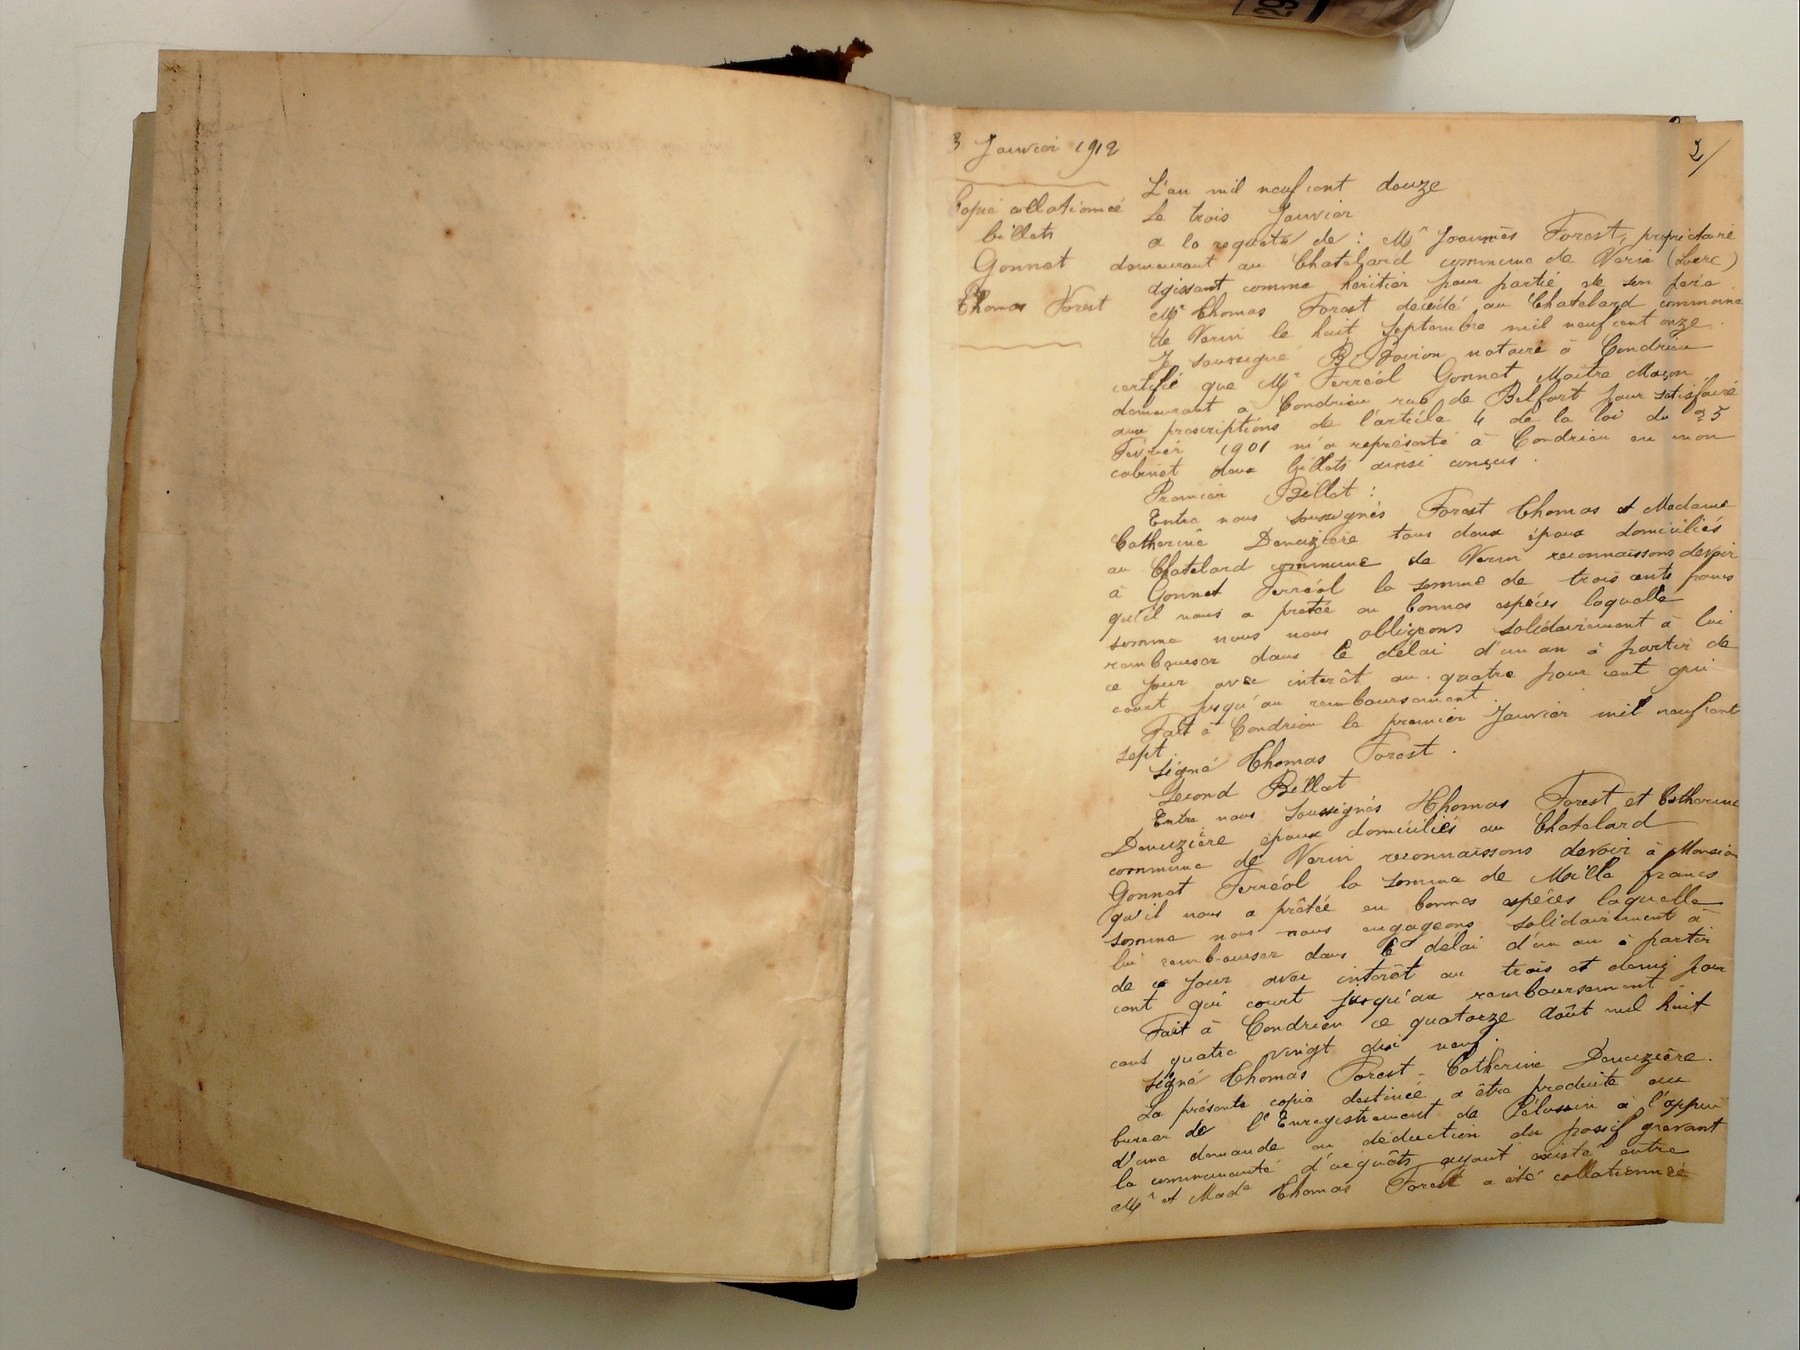 29
2/
3 Janvier 1912
Copie collationnée
billets
Gonnet
Thomas Forest
L'an mil neuf cent douze
Le trois Janvier
a la requete de : Mr Joannès Forest, propriétaire
demeurant au Chatelard commune de Verin (Loire)
agissant comme héritier pour partie de son père
Mr Thomas Forest décédé au Chatelard commune
de Verin le huit Septembre mil neuf cent onze.
Je soussigné notaire à Condrieu
certifie que Mr Ferréol Gonnet Maitre Maçon
demeurant a Condrieu rue de Belfort pour satisfaire
aux prescriptions de l'article 4 de la loi du 25
Février 1901 m'a représenté à Condrieu en mon
cabinet deux billets ainsi conçus.
Premier Billet :
Entre nous soussignés Forest Thomas et Madame
Catherine Devuzière tous deux époux domiciliés
au Chatelard commune de Verin reconnaissons devoir
à Gonnet Ferréol la somme de trois cents francs
qu'il nous a pretée en bonnes espèces laquelle
somme nous nous obligeons solidairement à lui
rembourser dans le délai d'un an à partir de
ce jour avec interêt au quatre pour cent qui
court jusqu'au remboursement.
Fait à Condrieu le premier Janvier mil neuf cent
sept.
Signé Thomas Forest.
Second Billet
Entre nous Soussignés Thomas Forest et Catherine
Devuzière époux domiciliés au Chatelard
commune de Verin reconnaissons devoir à Monsieur
Gonnet Ferréol la somme de Mille francs
qu'il nous a prêtée en bonnes espèces laquelle
somme nous nous engageons solidairement à
lui rembourser dans le délai d'un an à partir
de ce jour avec interêt au trois et demi pour
cent qui court jusqu'au remboursement.
Fait à Condrieu ce quatorze Août mil huit
cent quatre vingt dix neuf.
Signé Thomas Forest - Catherine Devuzière.
La présente copie destinée a être produite au
bureau de l'Enregistrement de Pélussin à l'appui
d'une demande en déduction du passif grevant
la communauté d'acquêts ayant existé entre
Mr et Made Thomas Forest a été collationnée